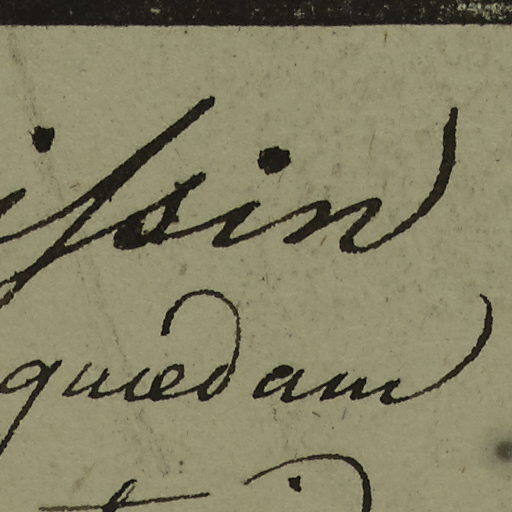 issin
quædam